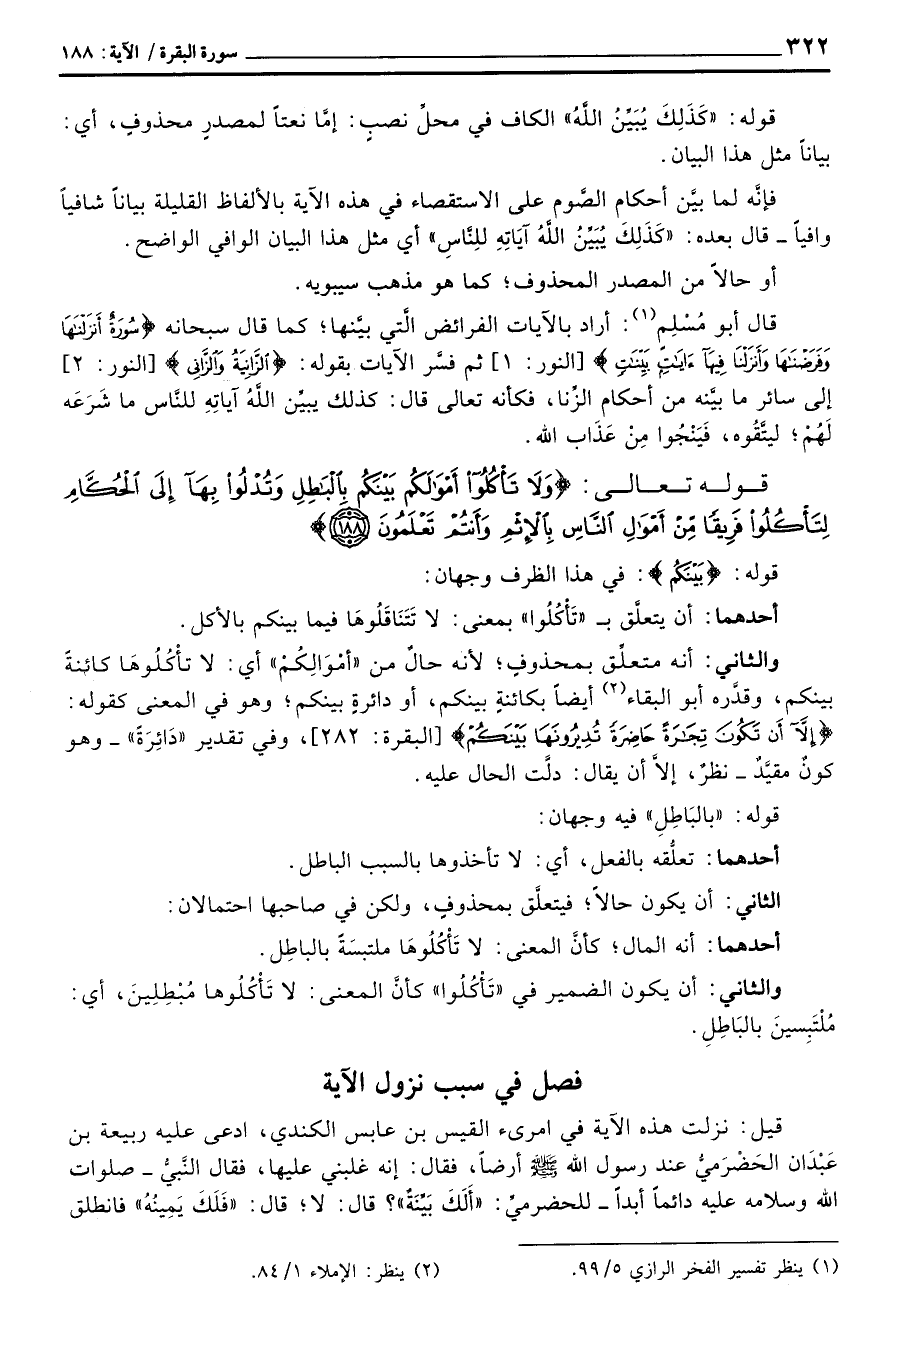 ٣٢٢ سورة البقرة / الآية: ١٨٨
قوله: «كَذَلِكَ يُبَيِّنُ اللَّهُ» الكاف في محلِّ نصبٍ: إمَّا نعتاً لمصدرٍ محذوفٍ، أي:
بياناً مثل هذا البيان.
فإنَّه لما بيَّن أحكام الصَّوم على الاستقصاء في هذه الآية بالألفاظ القليلة بياناً شافياً
وافياً ـ قال بعده: «كَذَلِكَ يُبَيِّنُ اللَّهُ آيَاتِهِ لِلنَّاسِ» أي مثل هذا البيان الوافي الواضح.
أو حالاً من المصدر المحذوف؛ كما هو مذهب سيبويه.
قال أبو مُسْلِم(١): أراد بالآيات الفرائض الَّتي بيَّنها؛ كما قال سبحانه ﴿سُورَةٌ أَنزَلْنَٰهَا
وَفَرَضْنَٰهَا وَأَنزَلْنَا فِيهَآ ءَايَٰتٍۭ بَيِّنَٰتٍ﴾ [النور: ١] ثم فسَّر الآيات بقوله: ﴿ٱلزَّانِيَةُ وَٱلزَّانِى﴾ [النور: ٢]
إلى سائر ما بيَّنه من أحكام الزِّنا، فكأنه تعالى قال: كذلك يبيِّن اللَّهُ آياتِهِ للنَّاس ما شَرَعَه
لَهُمْ؛ ليتَّقوه، فَيَنْجُوا مِنْ عَذَاب الله.
قوله تعالى: ﴿وَلَا تَأْكُلُوٓا۟ أَمْوَٰلَكُم بَيْنَكُم بِٱلْبَٰطِلِ وَتُدْلُوا۟ بِهَآ إِلَى ٱلْحُكَّامِ
لِتَأْكُلُوا۟ فَرِيقًا مِّنْ أَمْوَٰلِ ٱلنَّاسِ بِٱلْإِثْمِ وَأَنتُمْ تَعْلَمُونَ ١٨٨﴾
قوله: ﴿بَيْنَكُم﴾: في هذا الظرف وجهان:
أحدهما: أن يتعلَّق بـ «تَأْكُلُوا» بمعنى: لا تَتَنَاقَلُوهَا فيما بينكم بالأكل.
والثاني: أنه متعلِّق بمحذوفٍ؛ لأنه حالٌ من «أَمْوَالِكُمْ» أي: لا تأْكُلُوهَا كائنةً
بينكم، وقدَّره أبو البقاء(٢) أيضاً بكائنةٍ بينكم، أو دائرةٍ بينكم؛ وهو في المعنى كقوله:
﴿إِلَّآ أَن تَكُونَ تِجَٰرَةً حَاضِرَةً تُدِيرُونَهَا بَيْنَكُمْ﴾ [البقرة: ٢٨٢]، وفي تقدير «دَائِرَةً» ـ وهو
كونٌ مقيَّدٌ ـ نظرٌ، إلاَّ أن يقال: دلَّت الحال عليه.
قوله: «بالبَاطِلِ» فيه وجهان:
أحدهما: تعلُّقه بالفعل، أي: لا تأخذوها بالسبب الباطل.
الثاني: أن يكون حالاً؛ فيتعلَّق بمحذوفٍ، ولكن في صاحبها احتمالان:
أحدهما: أنه المال؛ كأنَّ المعنى: لا تَأْكُلُوهَا ملتبسَةً بالباطِل.
والثاني: أن يكون الضمير في «تَأْكُلُوا» كأنَّ المعنى: لا تَأْكُلُوها مُبْطِلِينَ، أي:
مُلْتَبِسينَ بالبَاطِلِ.
فصل في سبب نزول الآية
قيل: نزلت هذه الآية في امرىء القيس بن عابس الكندي، ادعى عليه ربيعة بن
عَبْدَان الحَضْرَميُّ عند رسول الله ﷺ أرضاً، فقال: إنه غلبني عليها، فقال النَّبيُّ ـ صلوات
الله وسلامه عليه دائماً أبداً ـ للحضرميِّ: «أَلَكَ بَيِّنَةٌ»؟ قال: لا؛ قال: «فَلَكَ يَمِينُهُ» فانطلق
(١) ينظر تفسير الفخر الرازي ٩٩/٥. (٢) ينظر: الإملاء ٨٤/١.